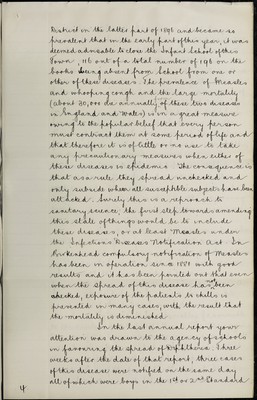 District in the latter part of 1896 and became so
prevalent that in the early part of this year, it was
deemed advisable to close the Infant School of this
Town, 116 out of a total number of 196 on the
books being absent from School from one or
other of these diseases. The prevalence of Measles
and whooping cough and the large mortality
(about 20,000 die annually of these two diseases
in England and Wales) is in a great measure
owing to the popular belief that every person
must contract them at some period of life and
that therefore it is of little or no use to take
any precautionary measures when either of
these diseases is epidemic. The consequence is
that as a rule they spread unchecked and
only subside when all susceptible subjects have been
attacked. Surely this is a reproach to
sanitary science; the first step towards amending
this state of things would be to include
these diseases, or at least Measles under
the Infectious Diseases Notification Act. In
Birkenhead compulsory notification of Measles
has been in operation since 1881 with good
results and it has been pointed out that even
when the spread of this disease has not been
checked, exposure of the patients to chills is
prevented in many cases, with the result that
the mortality is diminished.
In the last annual report your
attention was drawn to the agency of schools
in favouring the spread of Diphtheria. Three
weeks after the date of that report, three cases
of this disease were notified on the same day
all of which were boys in the 1st or 2nd Standard
4